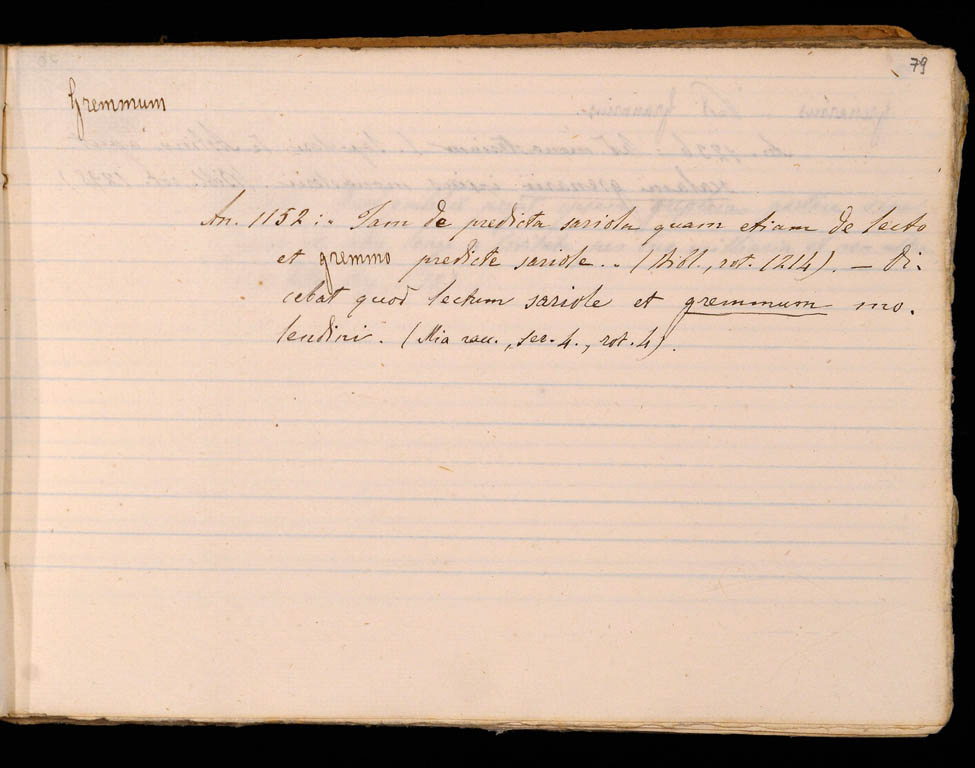 79
Gremmum
An. 1152 :. Tam de predicta sariola quam etiam de lecto
et gremmo predicte sariole .. (Bibl., rot. 1214). — Di-
cebat quod lectum sariole et gremmum mo-
lendini. (Mia racc., ser. 4., rot. 4).